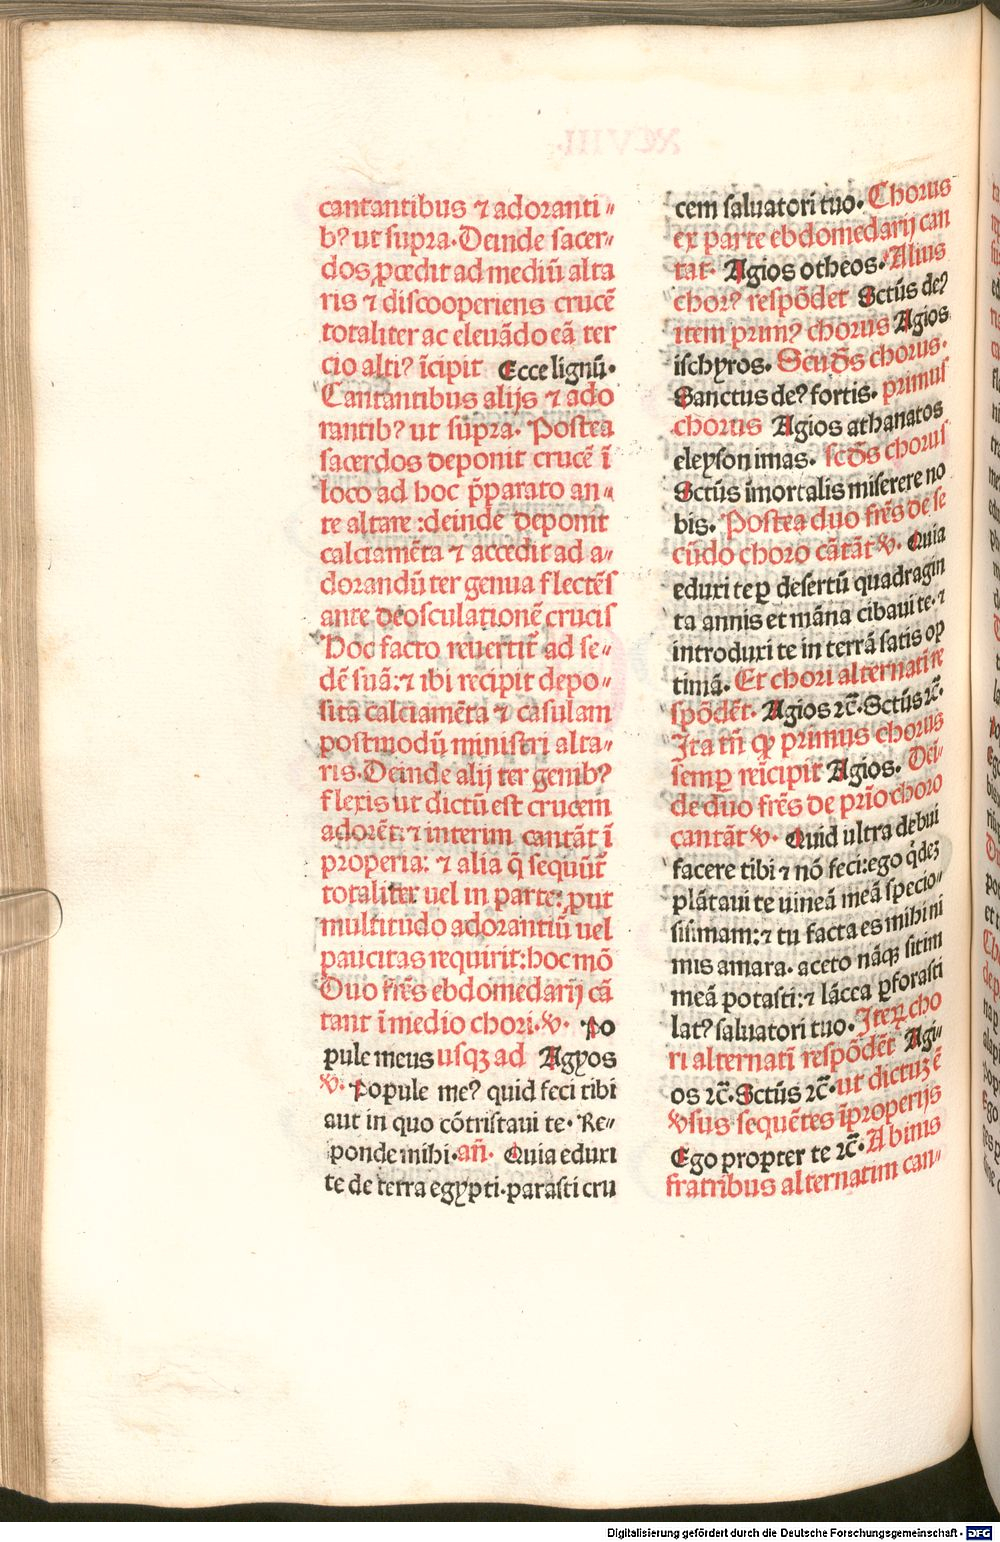 cantantibus ⁊ adoranti〃
bꝰ ut supra. Deinde sacer〃
dos ꝓcedit ad mediū alta
ris ⁊ discooperiens crucē
totaliter ac eleuādo eā ter
cio altiꝰ īcipit Ecce lignū.
Cantantibus alijs ⁊ ado
rantibꝰ ut supra. Postea
sacerdos deponit crucē ī
loco ad hoc p̄parato an〃
te altare :deinde deponit
calciamēta ⁊ accedit ad a〃
dorandū ter genua flectēs
ante deosculationē crucis
Hoc facto reuertit̄ ad se〃
dē suā:⁊ ibi recipit depo〃
sita calciamēta ⁊ casulam
postmodū ministri alta〃
ris. Deinde alij ter genibꝰ
flexis ut dictū est crucem
adorēt:⁊ interim cantāt ī
properia: ⁊ alia q̄ sequūt̄
totaliter uel in parte: ꝓut
multitudo adorantiū uel
paucitas requirit:hoc mō
Duo fr̄es ebdomedarij cā
tant ī medio chori. ℣. Po
pule meus usqꝫ ad Agyos
℣. Popule meꝰ quid feci tibi
aut in quo cōtristaui te. Re〃
ponde mihi. an̄. Quia eduxi
te de terra egypti.parasti cru
cem saluatori tuo. Chorus
ex parte ebdomedarij can
tat. Agios otheos. Alius
chorꝰ respōdet Sctūs deꝰ
item primꝰ chorus Agios
ischyros. Scūds chorus.
Sanctus deꝰ fortis. primus
chorus Agios athanatos
eleyson imas. scd̄s chorus
Sctūs īmortalis miserere no
bis. Postea duo fr̄es de se
cūdo choro cātāt ℣. Quia
eduxi te ꝑ desertū quadragin
ta annis et māna cibaui te.⁊
introduxi te in terrā satis op
timā. Et chori alternati re
spōdēt. Agios ⁊c̄. Sctūs ⁊c̄.
Ita tn̄ ꝙ primus chorus
semꝑ reīcipit Agios. Dei〃
de duo fr̄es de prīo choro
cantāt ℣. Quid ultra debui
facere tibi ⁊ nō feci:ego q̇deꝫ
plātaui te uineā meā specio〃
sissimam:⁊ tu facta es mihi ni
mis amara. aceto nāqꝫ sitim
meā potasti:⁊ lācea ꝑforasti
latꝰ saluatori tuo. Iteꝝ cho
ri alternati respōdēt Agi〃
os ⁊c̄. Sctūs ⁊c̄. ut dictuꝫ ē
℣sus sequētes īproperijs
Ego propter te ⁊c̄. A binis
fratribus alternatim can〃
Digitalisierung gefördert durch die Deutsche Forschungsgemeinschaft - DFG